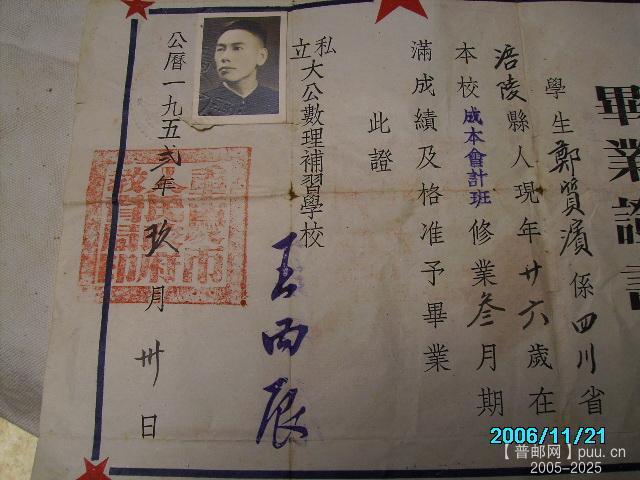 畢業證書
學生鄭質濱係四川省
涪陵縣人現年廿六歲在
本校成本會計班修業叁月期
滿成績及格准予畢業
此證
私立大公數理補習學校
王丙辰
公曆一九五弍年玖月卅日
2006/11/21
【普邮网】puu.cn
2005-2025